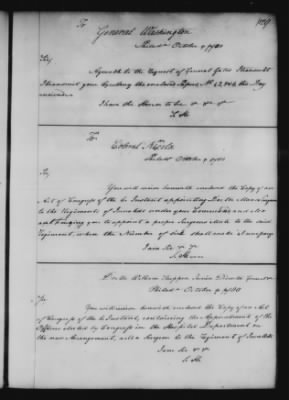 109
To
General Washington
Philad. October 9, 1780
Sir,
Agreeable to the Request of General Gates I transmit
your Excellency the enclosed Papers No 1, 2, 3 & 4, this Day
received
I have the Honor to be &c &c
S. H.
To
Colonel Nicola
Philad. October 9, 1780
Sir,
You will receive herewith enclosed the Copy of an
Act of Congress of the 6 Instant appointing Doctor
to the Regiment of Invalids under your Command and also
you to appoint a proper Surgeon's Mate to the said
Regiment, when the Number of Sick shall make it necessary
I am Sir &c &c
S. H.
Doctor William Shippen Junior Director General
Philad. October 9, 1780
Sir,
You will receive herewith enclosed the Copy of an Act
of Congress of the 6 Instant, containing the Appointment of the
Officers elected by Congress in the Hospital Department on
the new Arrangement, and a Surgeon to the Regiment of Invalids
I am Sir &c &c
S. H.